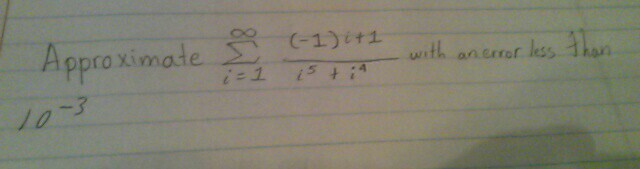 Approximate ∞ Σ i=1 (-1)i+1 / i⁵ + i⁴ with an error less than
10⁻³